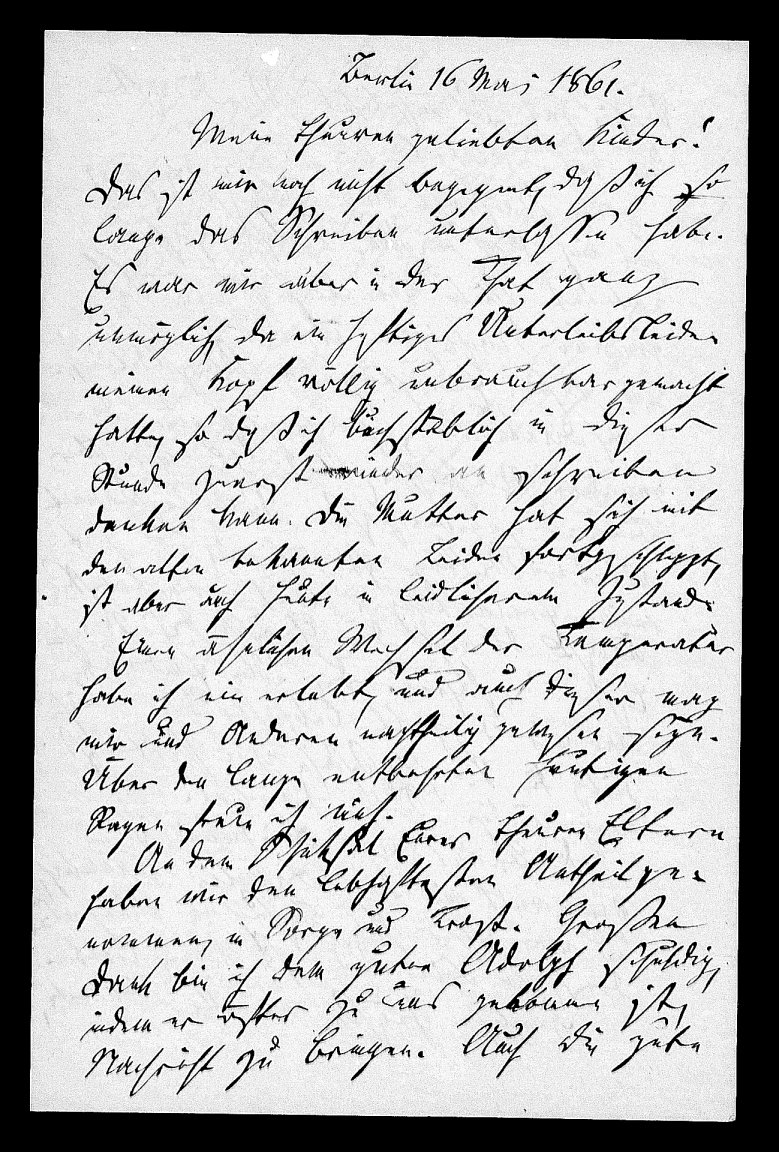 Berlin 16 Mai 1861.
Meine theuren geliebten Kinder!
Das ist mir noch nicht begegnet, daß ich so
lange das Schreiben unterlassen habe.
Es war mir aber in der That ganz
unmöglich, da ein heftiges Unterleibsleiden
meinen Kopf völlig unbrauchbar gemacht
hatte, so daß ich buchstäblich in dieser
Stunde zuerst wieder an schreiben
denken kann. Die Mutter hat sich mit
den alten bekannten Leiden fortgeschleppt,
ist aber auch heute in leidlicherem Zustande
Einen ähnlichen Wechsel der Temperatur
habe ich nie erlebt, und auch dieser mag
mir und Anderen nachtheilig gewesen seyn.
Über den lange entbehrten heutigen
Regen freue ich mich.
An dem Schicksal Eurer theuren Eltern
haben wir den lebhaftesten Antheil ge-
nommen, in Sorge und Trost. Großen
Dank bin ich dem guten Adolph schuldig,
indem er öfter zu uns gekommen ist,
Nachricht zu bringen. Auch die gute